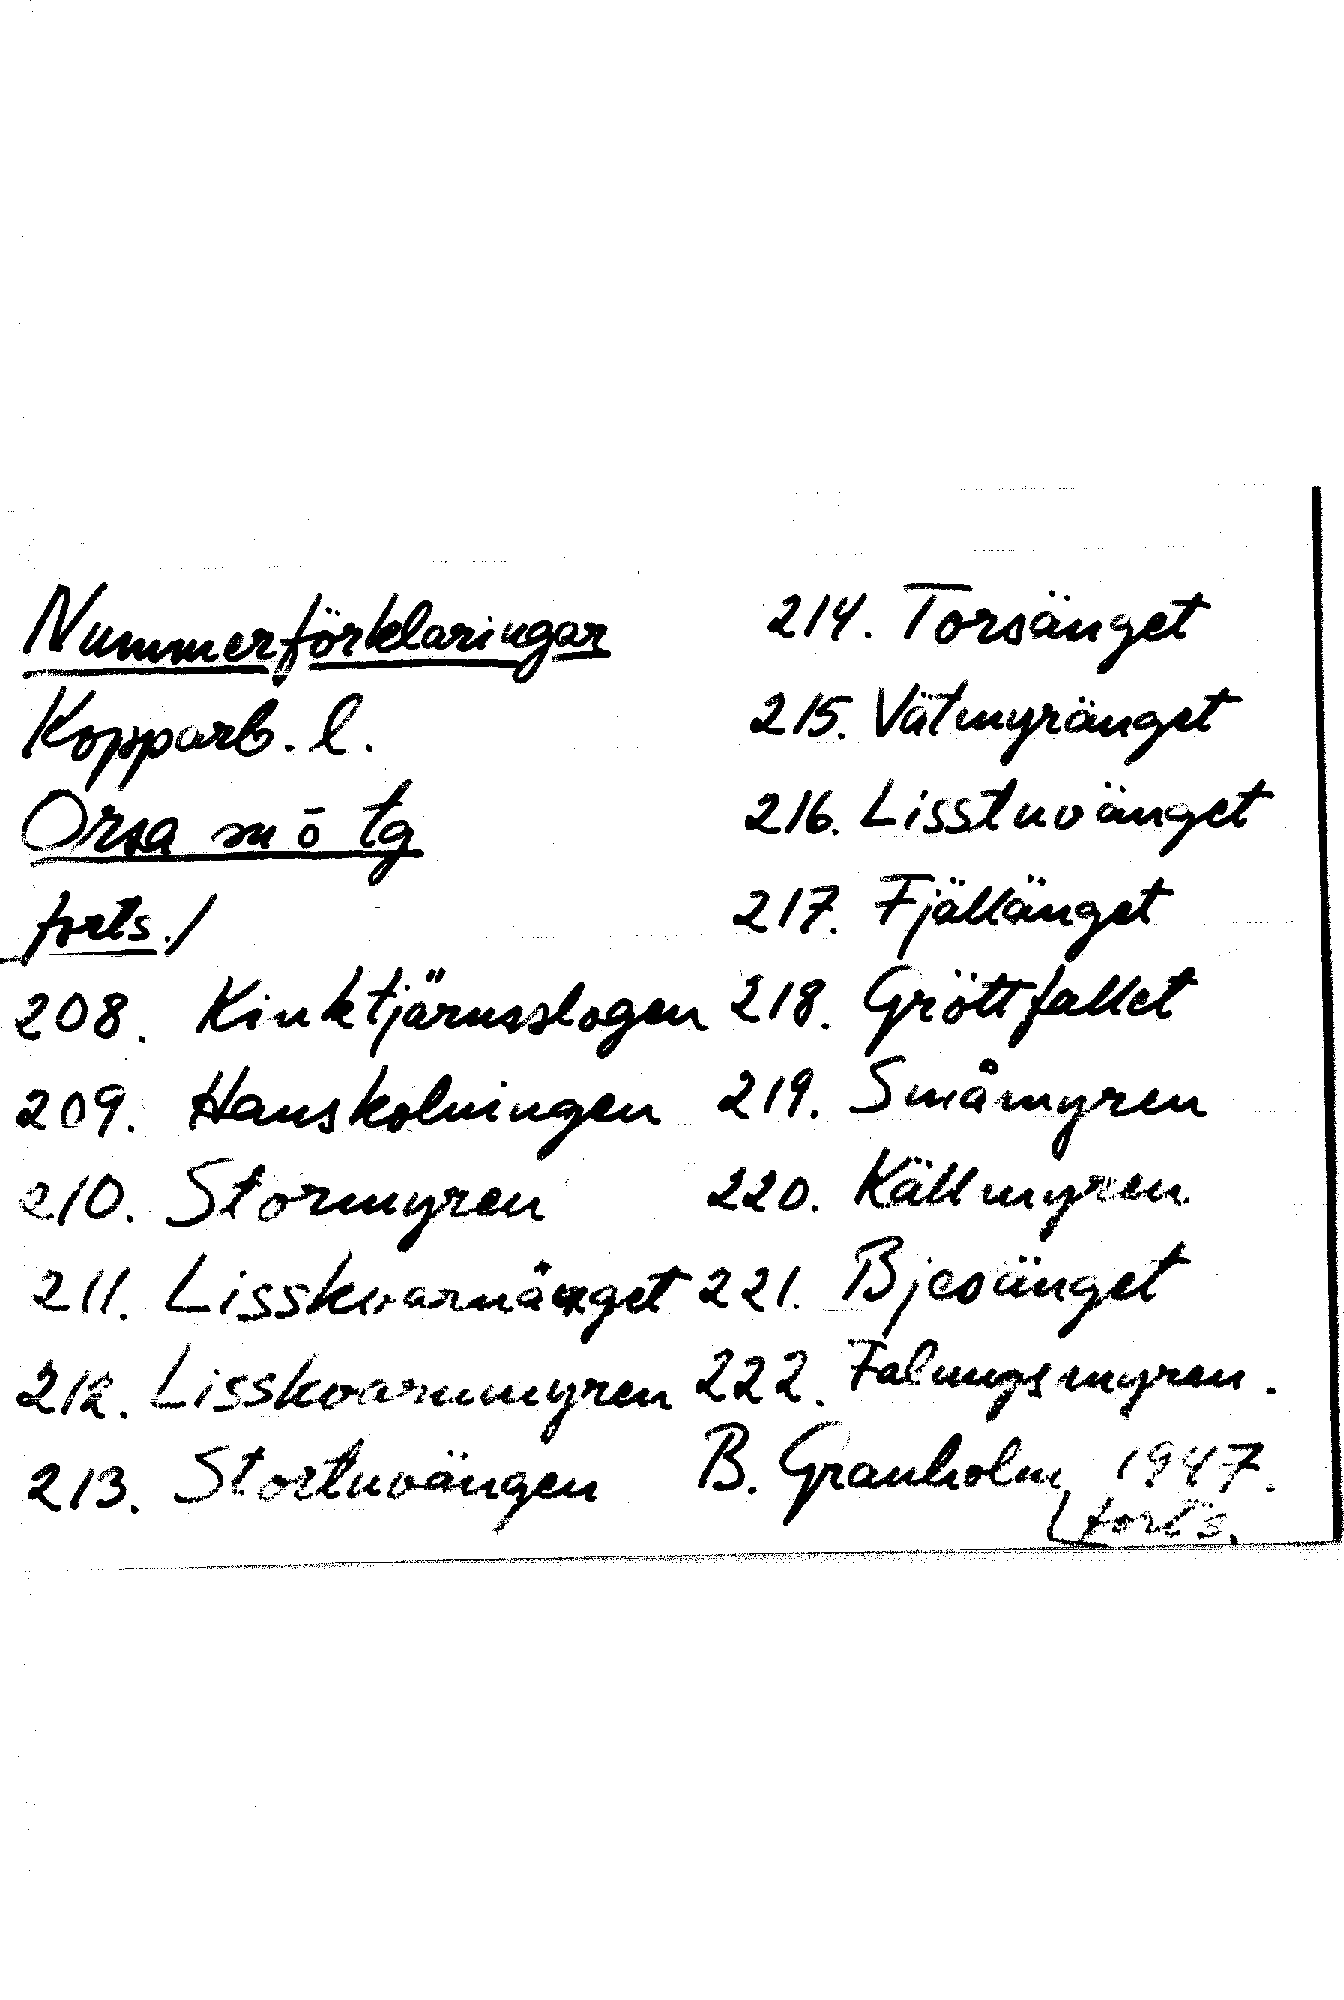 Nummerförklaringar
Kopparb. l.
Orsa sn ō tg
forts./
208. Kinktjärnsslogen
209. Hanskolningen
210. Stormyren
211. Lisskvarnänget
212. Lisskvarnmyren
213. Stortuvängen
214. Torsänget
215. Vätmyränget
216. Lisstuvänget
217. Fjällänget
218. Gröttfallet
219. Småmyren
220. Källmyren
221. Bjesänget
222. Falungsmyren.
B. Granholm 1947.
forts.